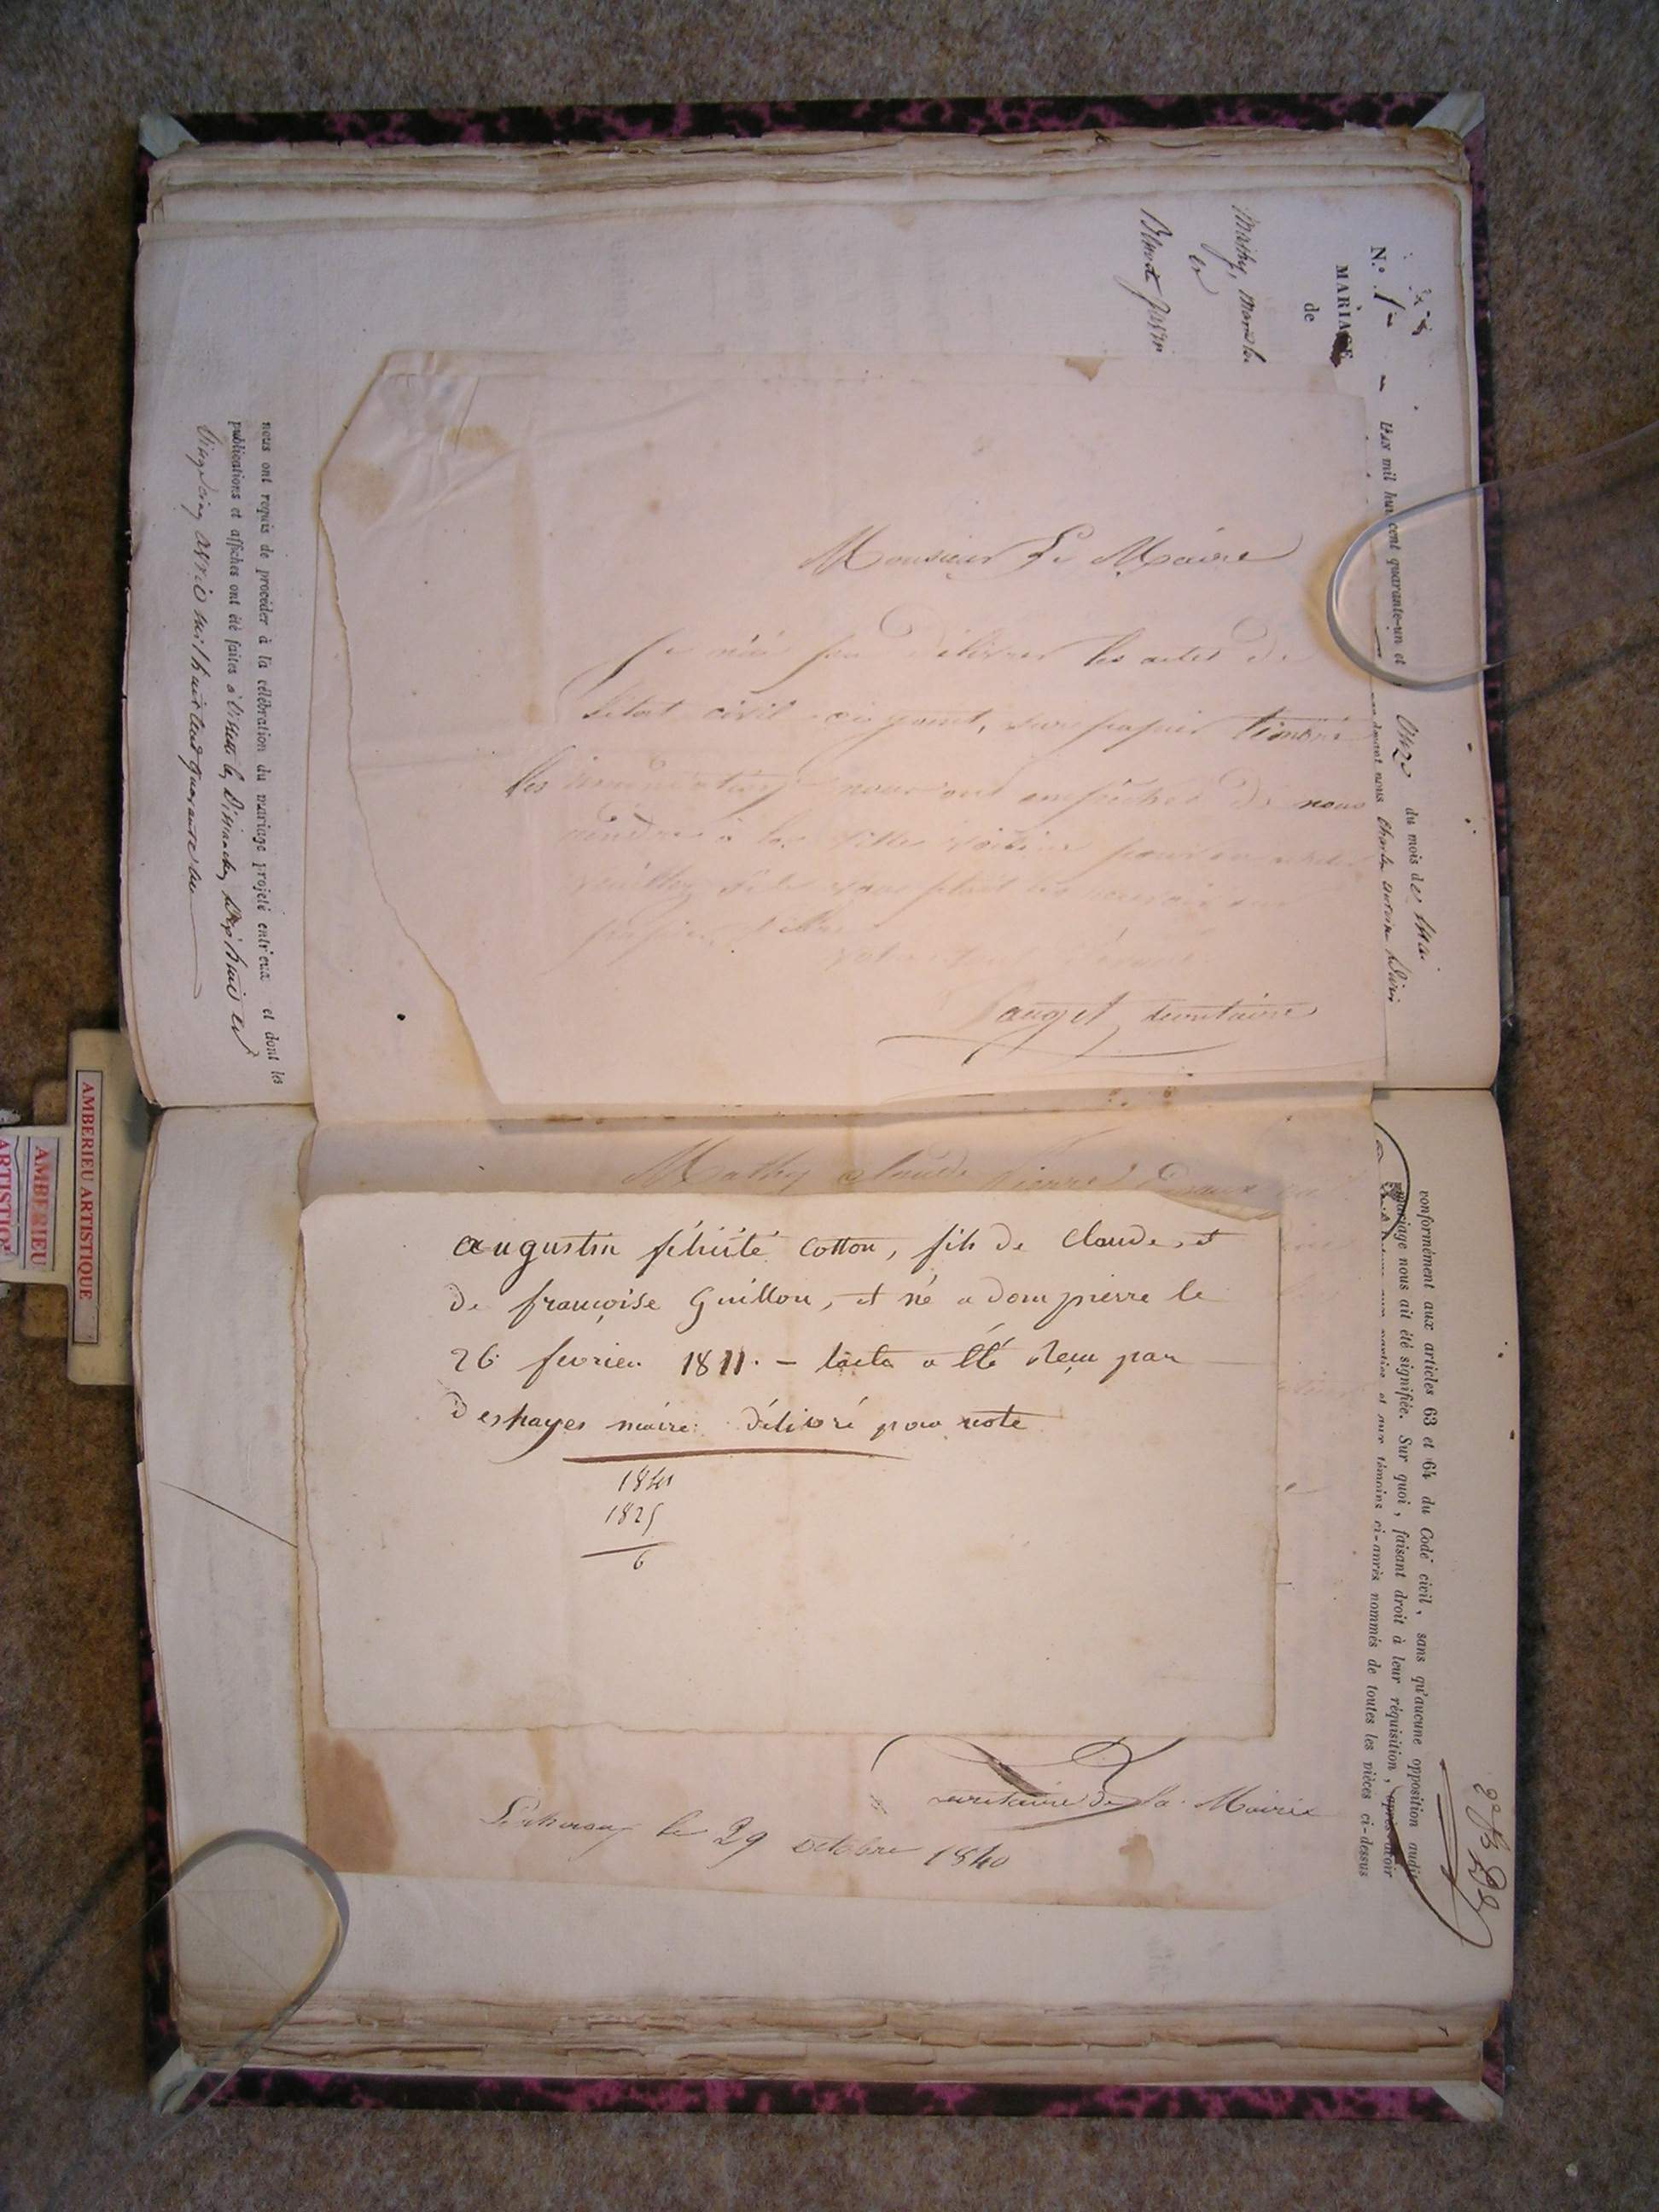 N.º 1
MARIAGE
de
Mathy,
et
Benoite
L'AN mil huit cent quarante-un et onze du mois de mai
devant nous Charles
nous ont requis de procéder à la célébration du mariage projeté entr'eux et dont les
publications et affiches ont été faites à les Dimanches Dix huit et
vingt cinq avril mil huit cent quarante un
Monsieur Le Maire
Je n'ai pu délivrer les actes de
l'état civil ci joint, sur papier timbré
les inondations nous ont empêcher de nous
rendre à la ville voisine pour en acheter
veuillez s'il vous plait les recevoir sur
papier libre
votre tout dévoué
Pauget secrétaire
Mathy Claude Pierre
augustin félicité Cotton, fils de Claude, et
de françoise Guillon, et né a dompierre le
26 fevrier 1811. – l'acte a été reçu par
deshayes maire. délivré pour note
1841
1825
6
secretaire de la Mairie
le 29 octobre 1840
conformément aux articles 63 et 64 du Code civil, sans qu'aucune opposition audit
mariage nous ait été signifiée. Sur quoi, faisant droit à leur réquisition, après avoir
aux parties et aux témoins ci-après nommés de toutes les pièces ci-dessus
AMBERIEU ARTISTIQUE
AMBERIEU
ARTISTIQUE